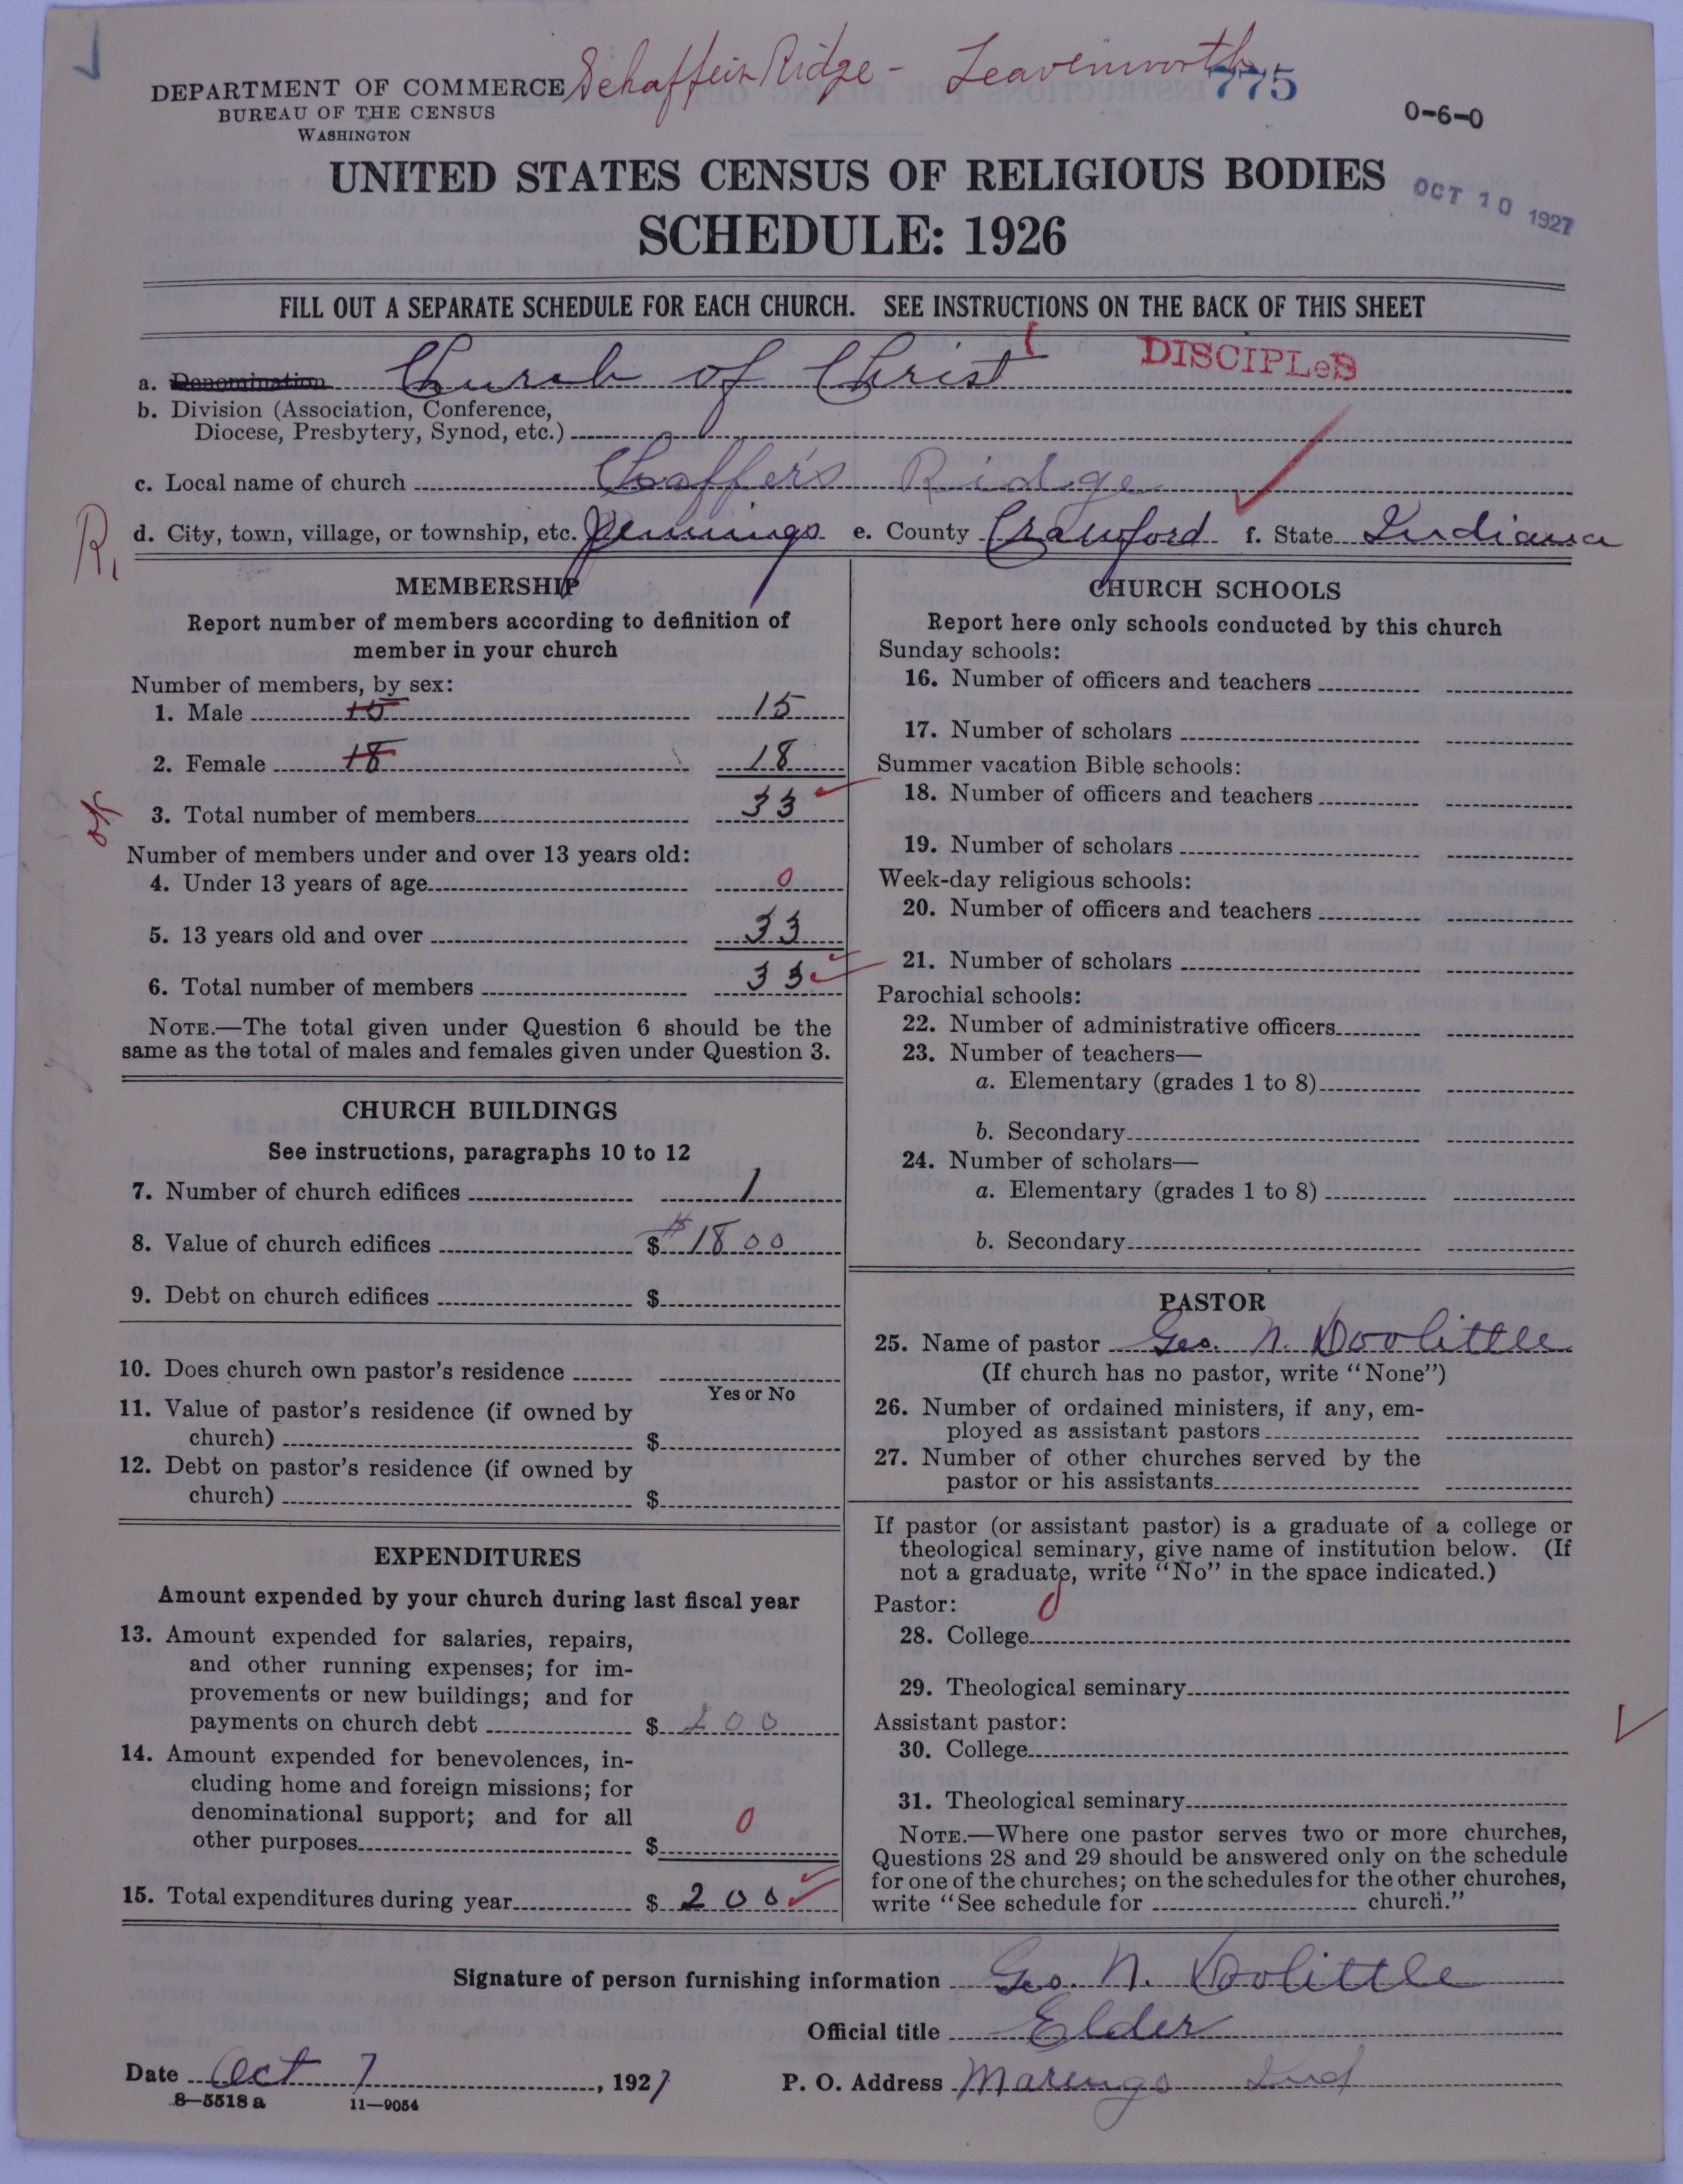 Schaffer Ridge - Leavenworth
775
DEPARTMENT OF COMMERCE
BUREAU OF THE CENSUS
WASHINGTON
0-6-0
UNITED STATES CENSUS OF RELIGIOUS BODIES
SCHEDULE: 1926
OCT 10 1927
FILL OUT A SEPARATE SCHEDULE FOR EACH CHURCH. SEE INSTRUCTIONS ON THE BACK OF THIS SHEET
a. Denomination Church of Christ DISCIPLeS
b. Division (Association, Conference,
Diocese, Presbytery, Synod, etc.)
c. Local name of church Ridge
R,
d. City, town, village, or township, etc. Jennings e. County Crawford f. State Indiana
MEMBERSHIP
Report number of members according to definition of
member in your church
Number of members, by sex:
1. Male 15 15
2. Female 18 18
ok
3. Total number of members 33
Number of members under and over 13 years old:
4. Under 13 years of age 0
5. 13 years old and over 33
6. Total number of members 33
NOTE.—The total given under Question 6 should be the
same as the total of males and females given under Question 3.
CHURCH BUILDINGS
See instructions, paragraphs 10 to 12
7. Number of church edifices 1
8. Value of church edifices $ # 1800
9. Debt on church edifices $
10. Does church own pastor's residence
Yes or No
11. Value of pastor's residence (if owned by
church) $
12. Debt on pastor's residence (if owned by
church) $
EXPENDITURES
Amount expended by your church during last fiscal year
13. Amount expended for salaries, repairs,
and other running expenses; for im-
provements or new buildings; and for
payments on church debt $ 200
14. Amount expended for benevolences, in-
cluding home and foreign missions; for
denominational support; and for all
other purposes $ 0
15. Total expenditures during year $ 200
CHURCH SCHOOLS
Report here only schools conducted by this church
Sunday schools:
16. Number of officers and teachers
17. Number of scholars
Summer vacation Bible schools:
18. Number of officers and teachers
19. Number of scholars
Week-day religious schools:
20. Number of officers and teachers
21. Number of scholars
Parochial schools:
22. Number of administrative officers
23. Number of teachers—
a. Elementary (grades 1 to 8)
b. Secondary
24. Number of scholars—
a. Elementary (grades 1 to 8)
b. Secondary
PASTOR
25. Name of pastor Geo. N. Doolittle
(If church has no pastor, write "None")
26. Number of ordained ministers, if any, em-
ployed as assistant pastors
27. Number of other churches served by the
pastor or his assistants
If pastor (or assistant pastor) is a graduate of a college or
theological seminary, give name of institution below. (If
not a graduate, write "No" in the space indicated.)
Pastor: 0
28. College
29. Theological seminary
Assistant pastor:
30. College
31. Theological seminary
NOTE.—Where one pastor serves two or more churches,
Questions 28 and 29 should be answered only on the schedule
for one of the churches; on the schedules for the other churches,
write "See schedule for church."
Signature of person furnishing information Geo. N. Doolittle
Official title Elder
Date Oct 7, 1927 P. O. Address Marengo Ind
8—5518 a 11—9054